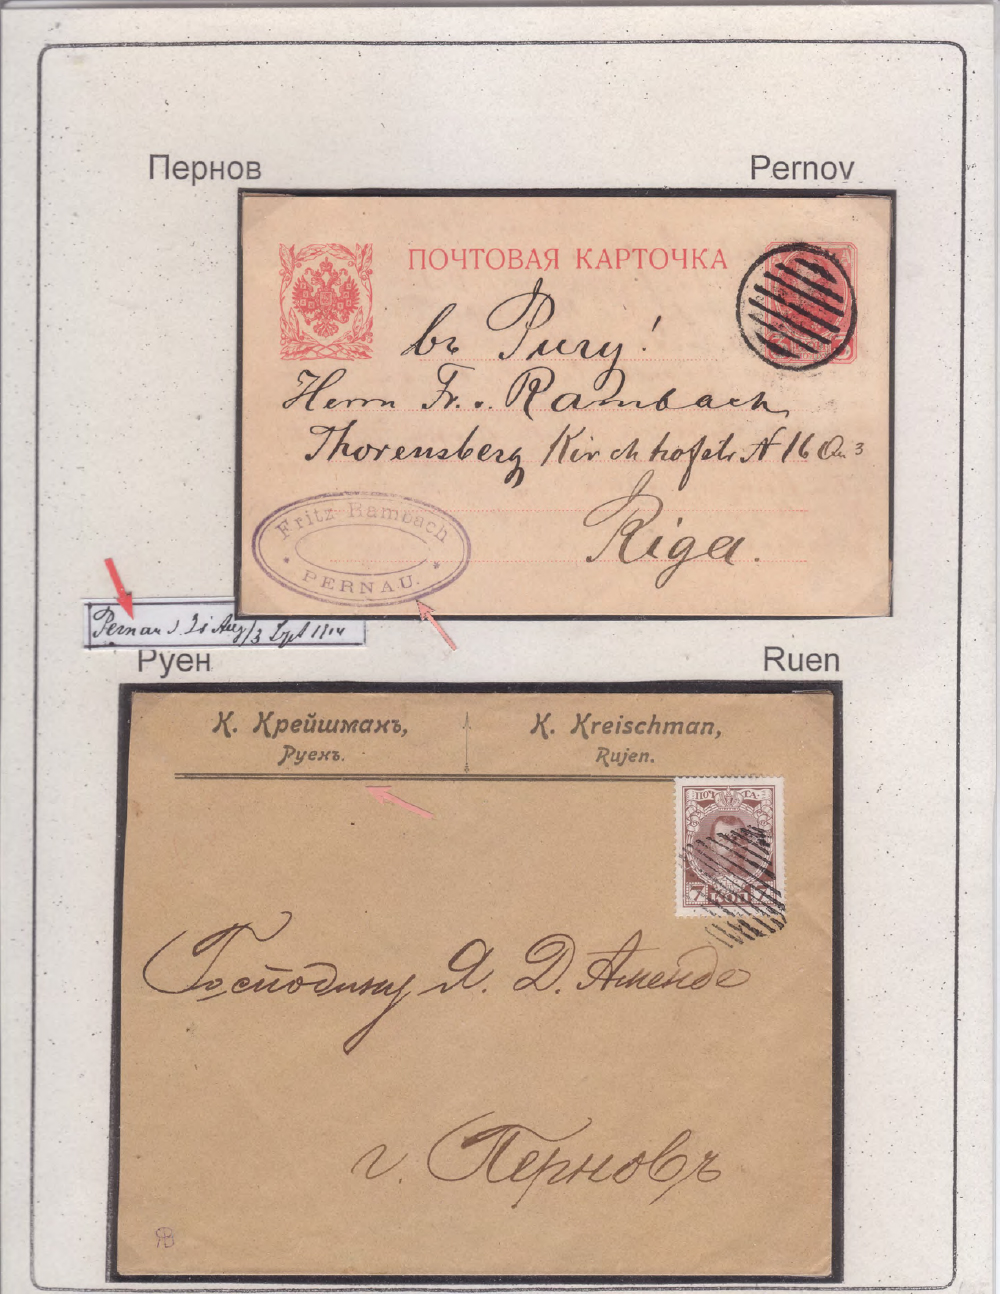 Пернов
Pernov
ПОЧТОВАЯ КАРТОЧКА
въ Ригу!
Herrn Fr. v. Rambach
Thorensberg Kirchhofstr. N 16 Qu 3
Riga.
Fritz Rambach
PERNAU.
Pernau d. 21 Aug/3 Sept 1914
Руен
Ruen
К. Крейшманъ,
Руенъ.
K. Kreischman,
Rujen.
ПОЧТА
7 КОП 7
Господину Я. Д. Аменде
г. Перновъ